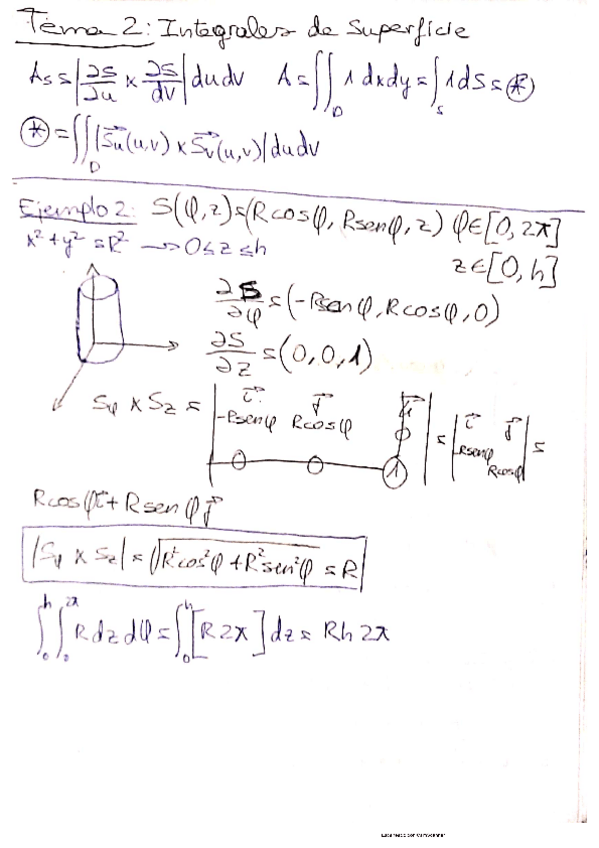 Tema 2: Integrales de Superficie
As = |∂S/∂u x ∂S/∂v| du dv   A = ∬_D 1 dxdy = ∫_S 1 dS = (*)
(*) = ∬_D |Su(u,v) x Sv(u,v)| du dv
Ejemplo 2: S(φ,z) = (R cosφ, R senφ, z) φ∈[0,2π]
x² + y² = R² → 0 ≤ z ≤ h   z∈[0,h]
∂S/∂φ = (-R senφ, R cosφ, 0)
∂S/∂z = (0,0,1)
Sφ x Sz = | i j k | = | i j | =
-R senφ R cosφ 0   R senφ R cosφ
0 0 1
R cosφ i + R senφ j
|Sφ x Sz| = √(R² cos²φ + R² sen²φ) = R
∫₀^h ∫₀^2π R dz dφ = ∫₀^h [R 2π] dz = R h 2π